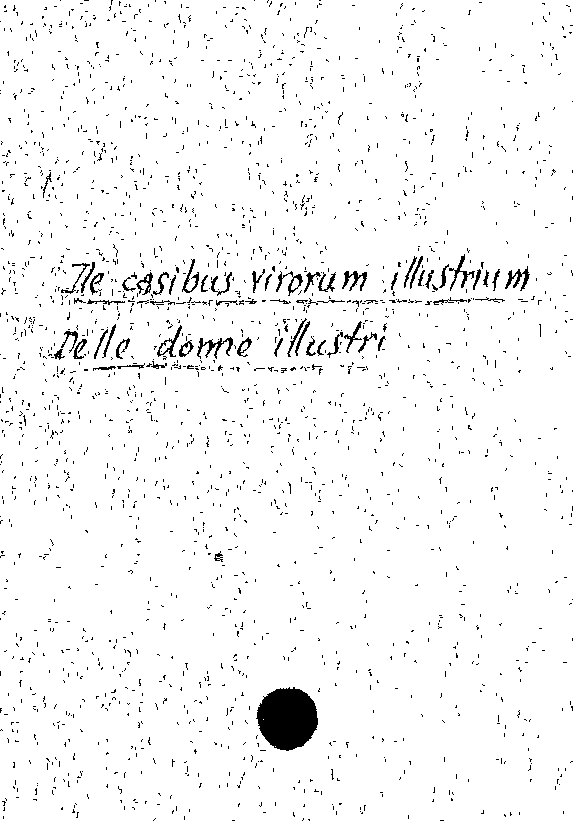 De casibus virorum illustrium
Delle donne illustri